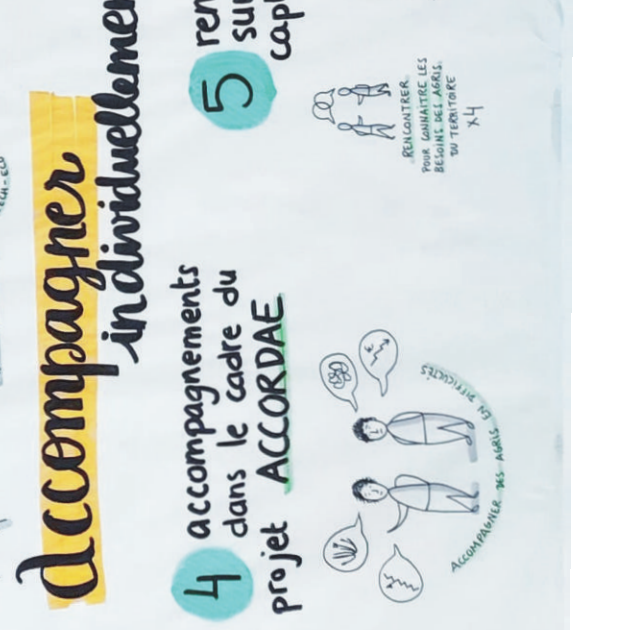 accompagner
individuellemen
4 accompagnements
dans le cadre du
projet ACCORDAE
ACCOMPAGNER DES AGRIS EN DIFFICULTÉS
5 ren
su
cap
RENCONTRER
POUR CONNAITRE LES
BESOINS DES AGRIS
DU TERRITOIRE
x4